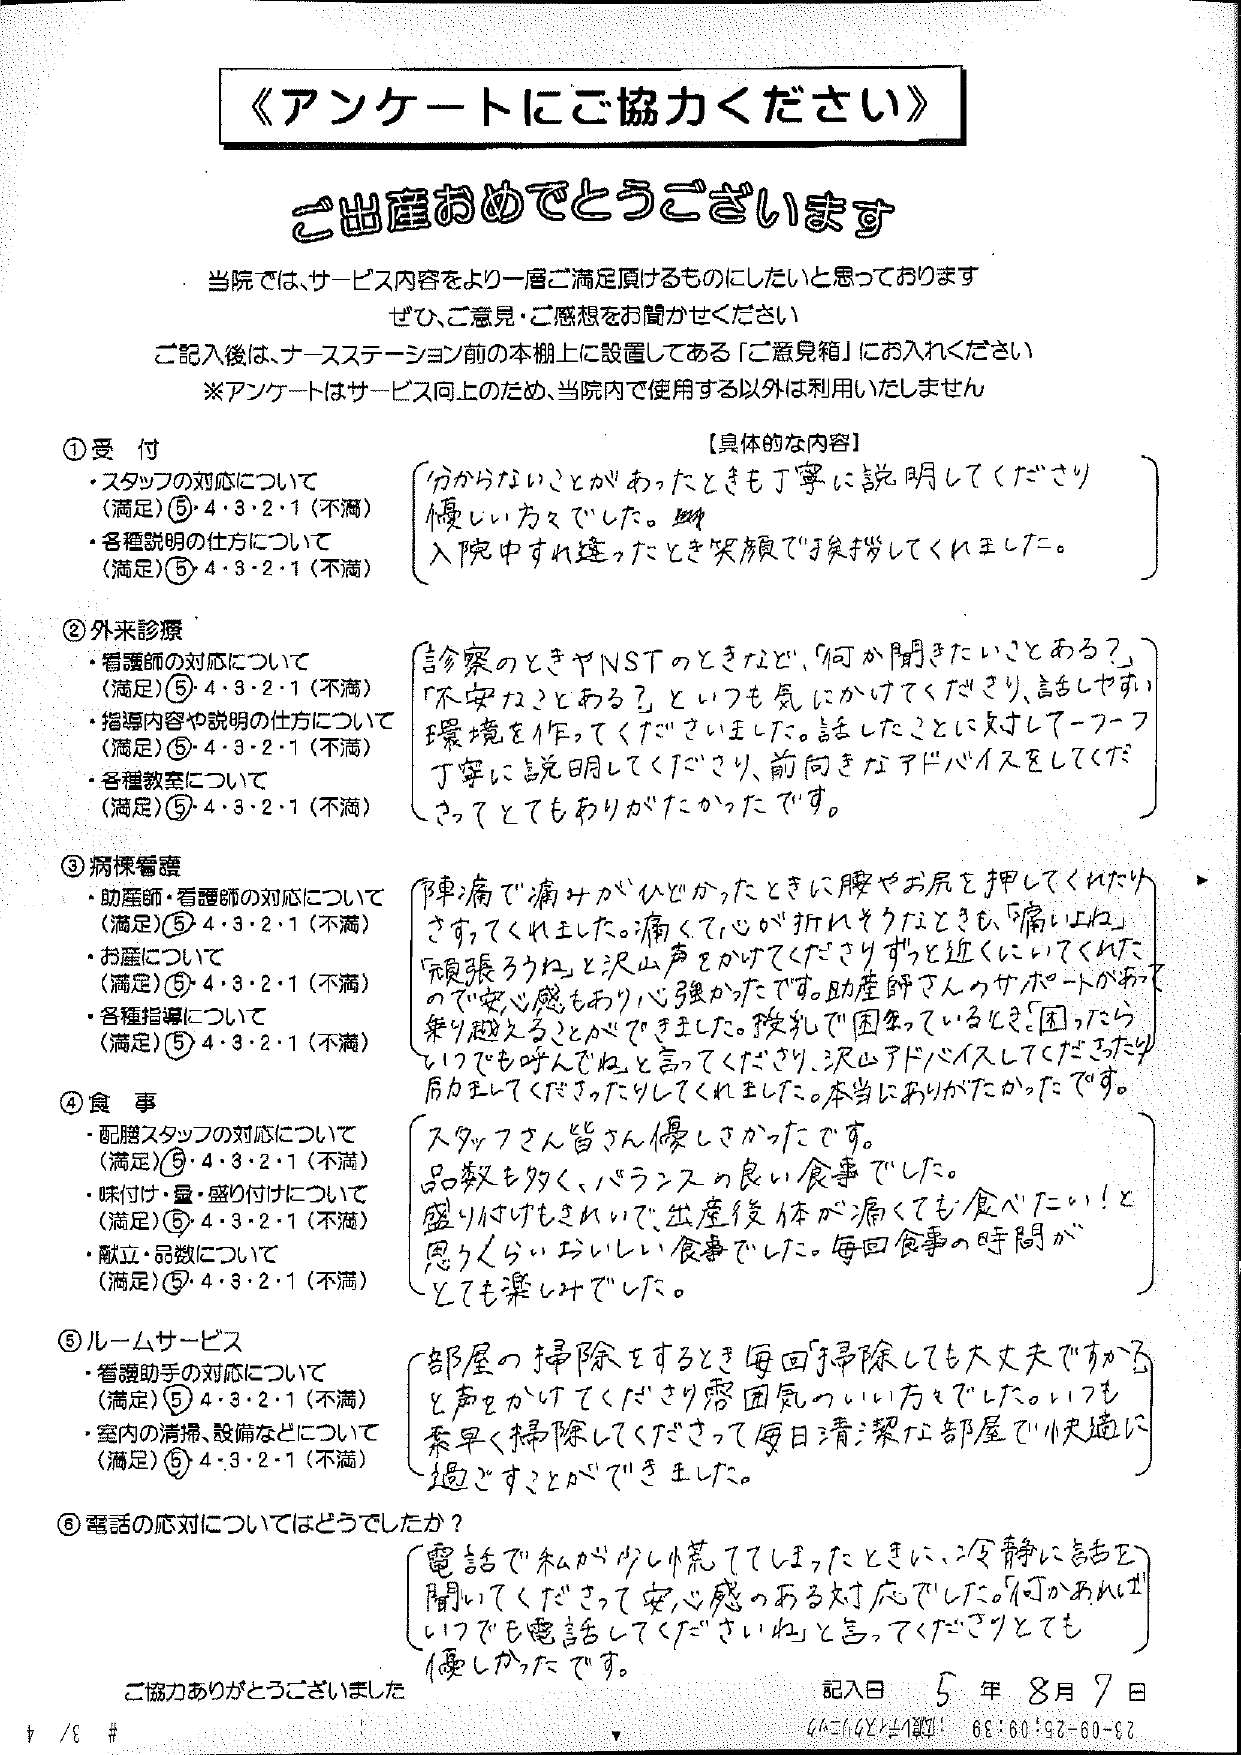 《アンケートにご協力ください》
ご出産おめでとうございます
当院では、サービス内容をより一層ご満足頂けるものにしたいと思っております
ぜひ、ご意見・ご感想をお聞かせください
ご記入後は、ナースステーション前の本棚上に設置してある「ご意見箱」にお入れください
※アンケートはサービス向上のため、当院内で使用する以外は利用いたしません
①受 付
・スタッフの対応について
(満足)⑤・4・3・2・1(不満)
・各種説明の仕方について
(満足)⑤・4・3・2・1(不満)
【具体的な内容】
分からないことがあったときも丁寧に説明してくださり
優しい方々でした。
入院中すれ違ったとき笑顔で挨拶してくれました。
②外来診療
・看護師の対応について
(満足)⑤・4・3・2・1(不満)
・指導内容や説明の仕方について
(満足)⑤・4・3・2・1(不満)
・各種教室について
(満足)⑤・4・3・2・1(不満)
診察のときやNSTのときなど、「何か聞きたいことある?」
「不安なことある?」といつも気にかけてくださり、話しやすい
環境を作ってくださいました。話したことに対して一つ一つ
丁寧に説明してくださり、前向きなアドバイスをしてくだ
さってとてもありがたかったです。
③病棟看護
・助産師・看護師の対応について
(満足)⑤・4・3・2・1(不満)
・お産について
(満足)⑤・4・3・2・1(不満)
・各種指導について
(満足)⑤・4・3・2・1(不満)
陣痛で痛みがひどかったときに腰やお尻を押してくれたり
さすってくれました。痛くて心が折れそうなときも、「痛いよね」
「頑張ろうね」と沢山声をかけてくださりずっと近くにいてくれた
ので安心感もあり心強かったです。助産師さんのサポートがあって
乗り越えることができました。授乳で困っているとき、「困ったら
いつでも呼んでね」と言ってくださり、沢山アドバイスしてくださったり
励ましてくださったりしてくれました。本当にありがたかったです。
④食 事
・配膳スタッフの対応について
(満足)⑤・4・3・2・1(不満)
・味付け・量・盛り付けについて
(満足)⑤・4・3・2・1(不満)
・献立・品数について
(満足)⑤・4・3・2・1(不満)
スタッフさん皆さん優しさかったです。
品数も多く、バランスの良い食事でした。
盛り付けもきれいで、出産後体が痛くても食べたい!と
思うくらいおいしい食事でした。毎回食事の時間が
とても楽しみでした。
⑤ルームサービス
・看護助手の対応について
(満足)⑤ 4・3・2・1(不満)
・室内の清掃、設備などについて
(満足)⑤・4・3・2・1(不満)
部屋の掃除をするとき毎回「掃除しても大丈夫ですか?」
と声をかけてくださり雰囲気のいい方々でした。いつも
素早く掃除してくださって毎日清潔な部屋で快適に
過ごすことができました。
⑥電話の応対についてはどうでしたか?
電話で私が少し慌ててしまったときに、冷静に話を
聞いてくださって安心感のある対応でした。「何かあれば
いつでも電話してくださいね」と言ってくださりとても
優しかったです。
ご協力ありがとうございました
記入日 5 年 8月 7 日
23-09-26;09:39
# 3/ 4